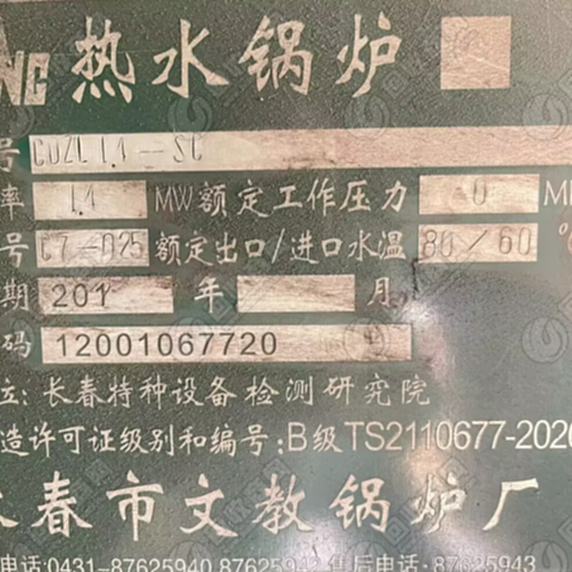 NC 热水锅炉
号 CDZL1.4-SC
率 1.4 MW 额定工作压力 0 M
号 C7-025 额定出口/进口水温 80/60 °
期 201 年 月
码 12001067720
位: 长春特种设备检测研究院
造许可证级别和编号:B级TS2110677-202
长春市文教锅炉厂
电话:0431-87625940 8762594 售后电话·87625943